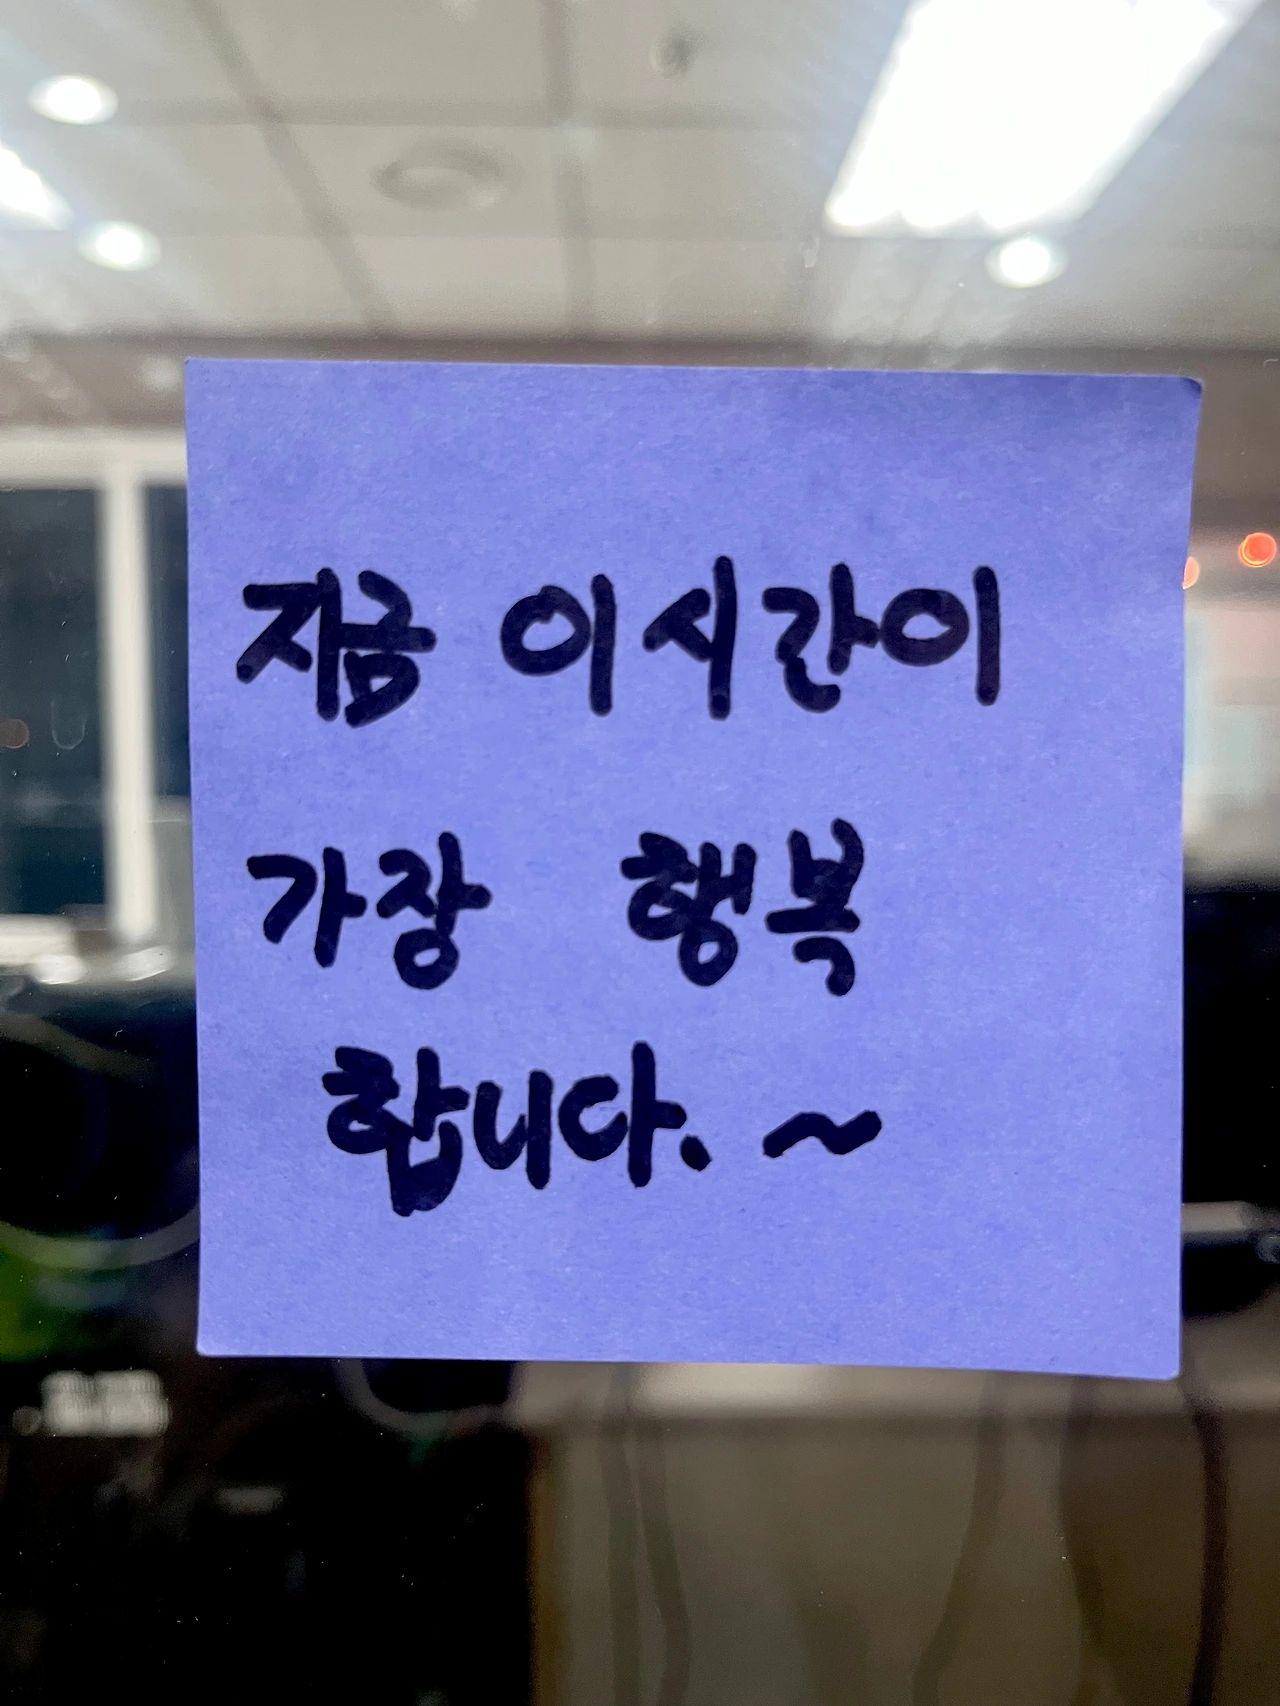 지금 이시간이
가장 행복
합니다. ~